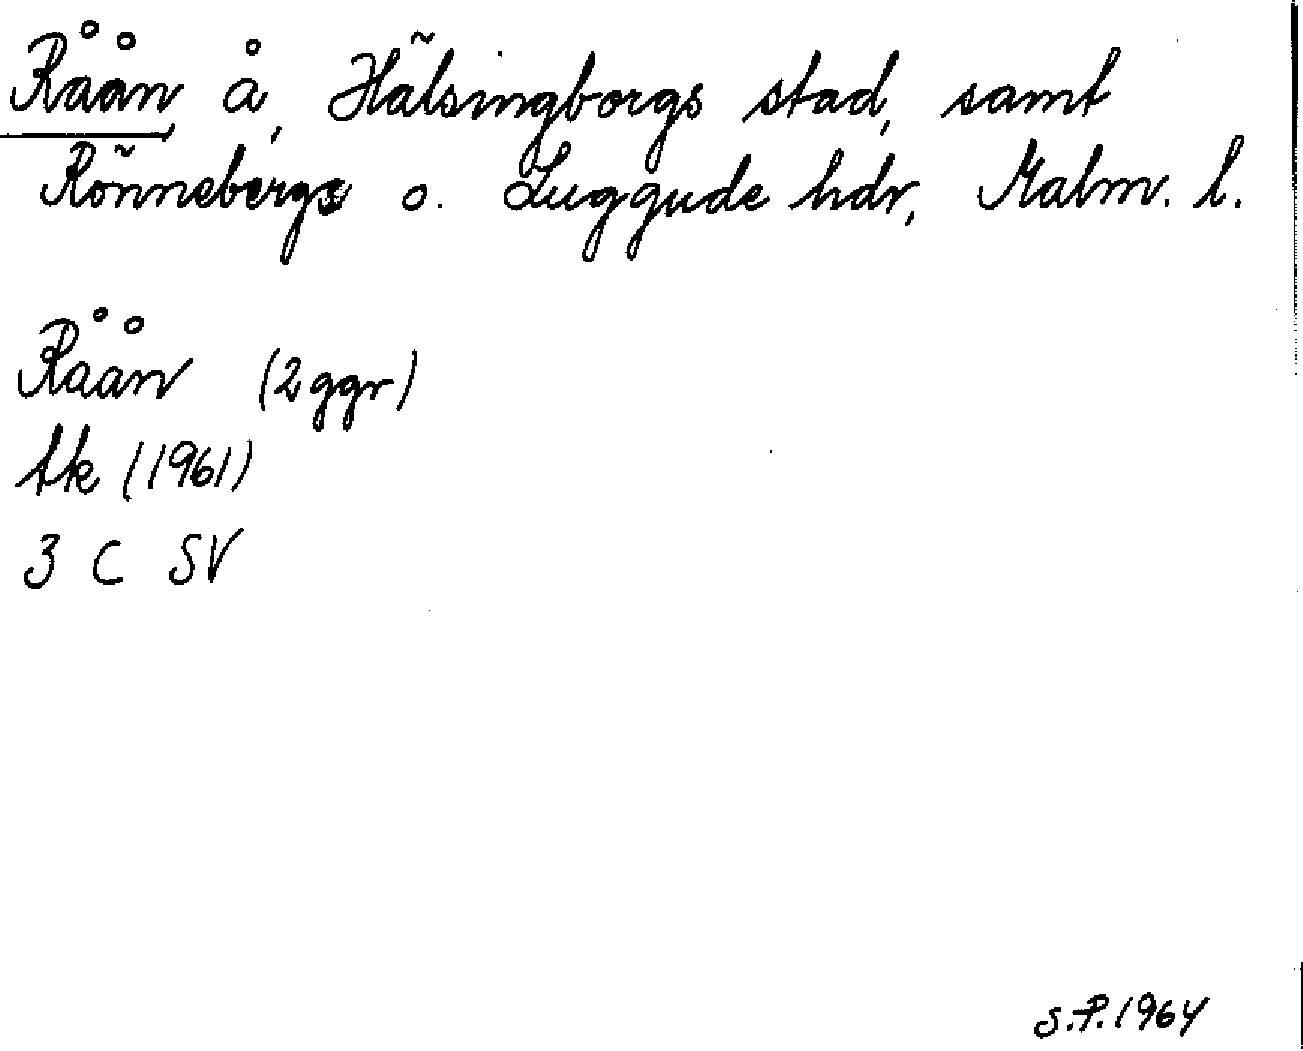 Råån, å, Hälsingborgs stad, samt
Rönnebergs o. Luggude hdr, Malm. l.
Råån (2 ggr)
tk (1961)
3 C SV
S.P. 1964